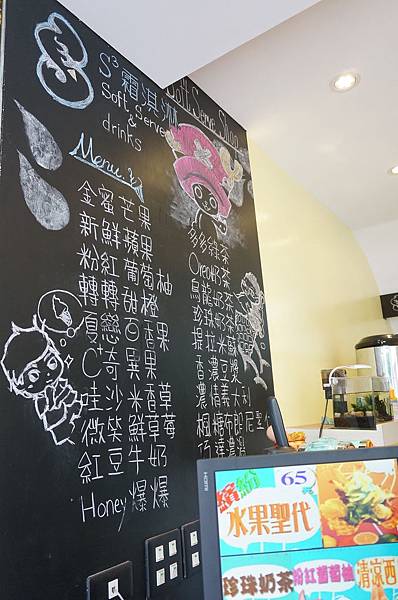 S³霜淇淋
Soft Serve
&
drinks
Soft Serve Shop
Menu
金蜜芒果
新鮮蘋果
粉紅葡萄柚
轉轉甜橙
夏戀百香果
C⁺奇異果
哇沙米香草
微笑鮮草莓
紅豆牛奶
Honey爆爆
多多綠茶
Oreo奶茶
烏龍奶茶
珍珠奶茶
提拉米蘇
香濃
濃情義大利
楓糖布朗尼聖
巧達濃湯
繽紛
65
水果聖代
珍珠奶茶
粉紅葡萄柚
清涼西